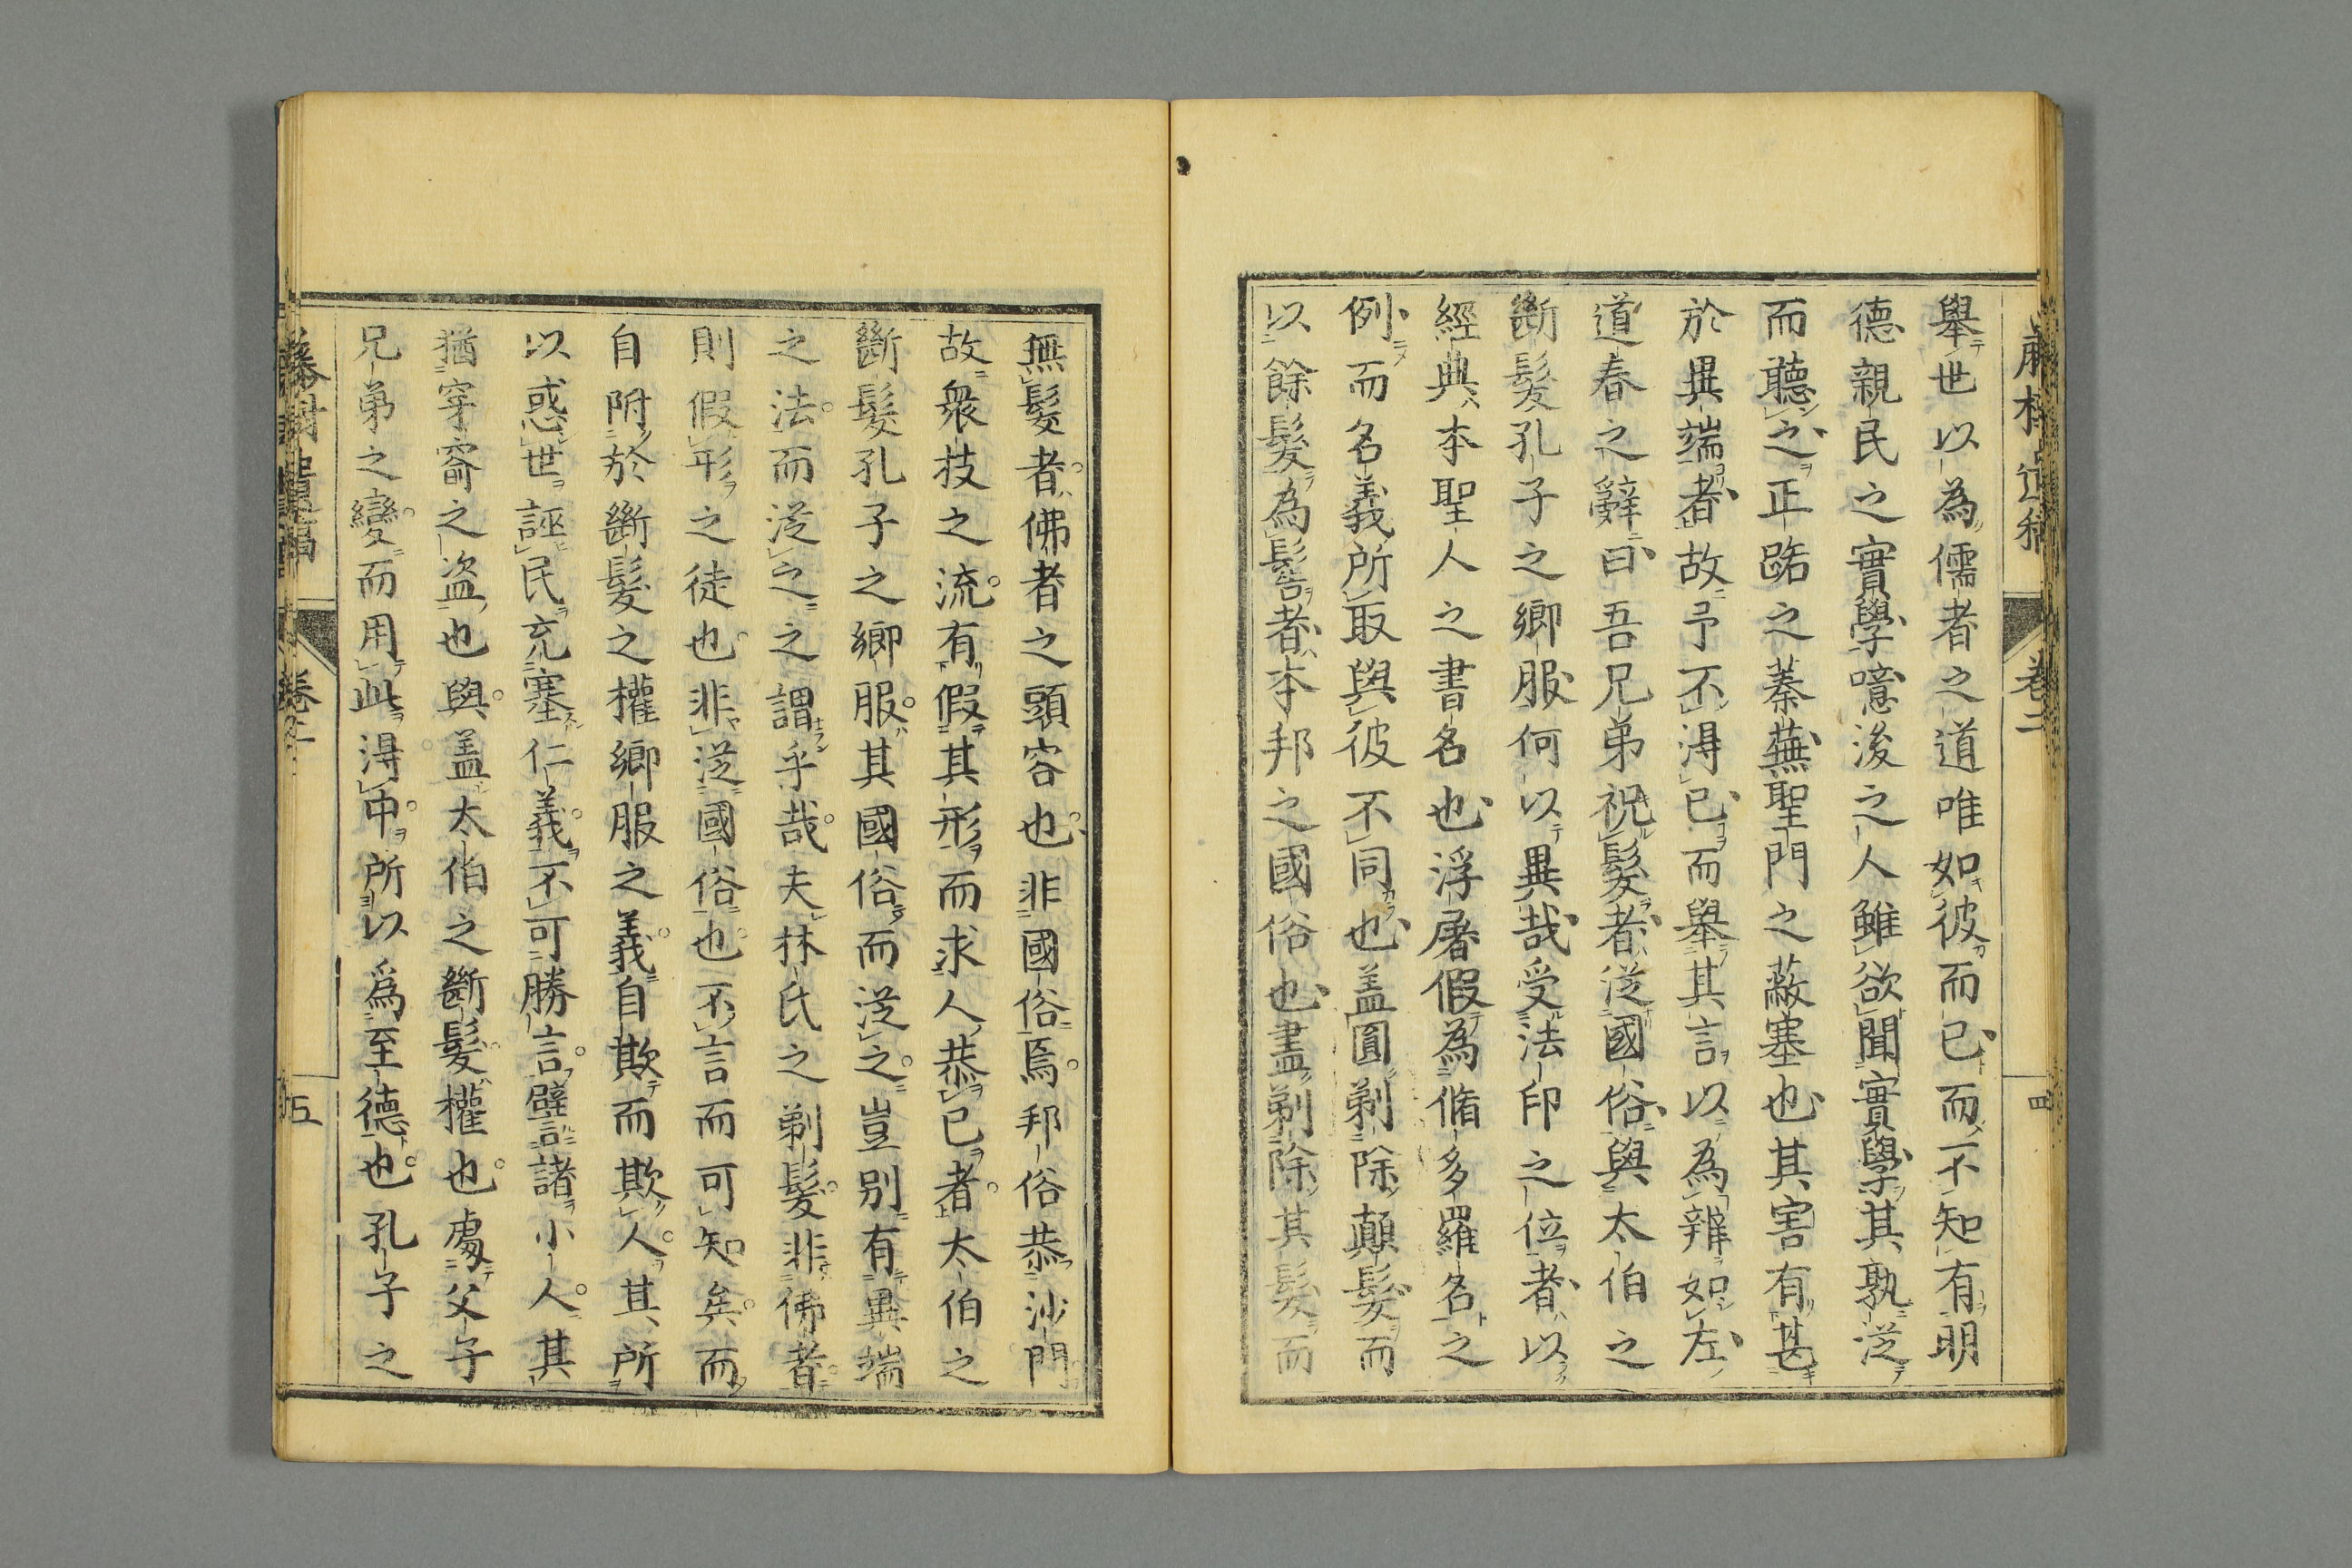 舉世以為儒者之道唯如彼而已而不知有明
德親民之實學噫後之人雖欲聞實學其孰從
而聽之正路之蓁蕪聖門之蔽塞也其害有甚
於異端者故予不得已而舉其言以為辨如左
道春之辭曰吾兄弟祝髮者從國俗與太伯之
斷髮孔子之鄉服何以異哉受法印之位者以
經典本聖人之書名也浮屠假為脩多羅名之
例而名義所取與彼不同也盖圓剃除顛髮而
以餘髮為髻者本邦之國俗也盡剃除其髮而
卷二
四
無髮者佛者之頭容也非國俗焉邦俗恭沙門
故衆技之流有假其形而求人恭已者太伯之
斷髮孔子之鄉服其國俗而從之豈別有異端
之法而從之之謂乎哉夫林氏之剃髮非佛者
則假形之徒也非從國俗也不言而可知矣而
自附於斷髮之權鄉服之義自欺而欺人其所
以惑世誣民充塞仁義不可勝言譬諸小人其
猶穿窬之盗也與盖太伯之斷髮權也處父子
兄弟之變而用此得中所以爲至德也孔子之
藤樹遺稿
卷二
五